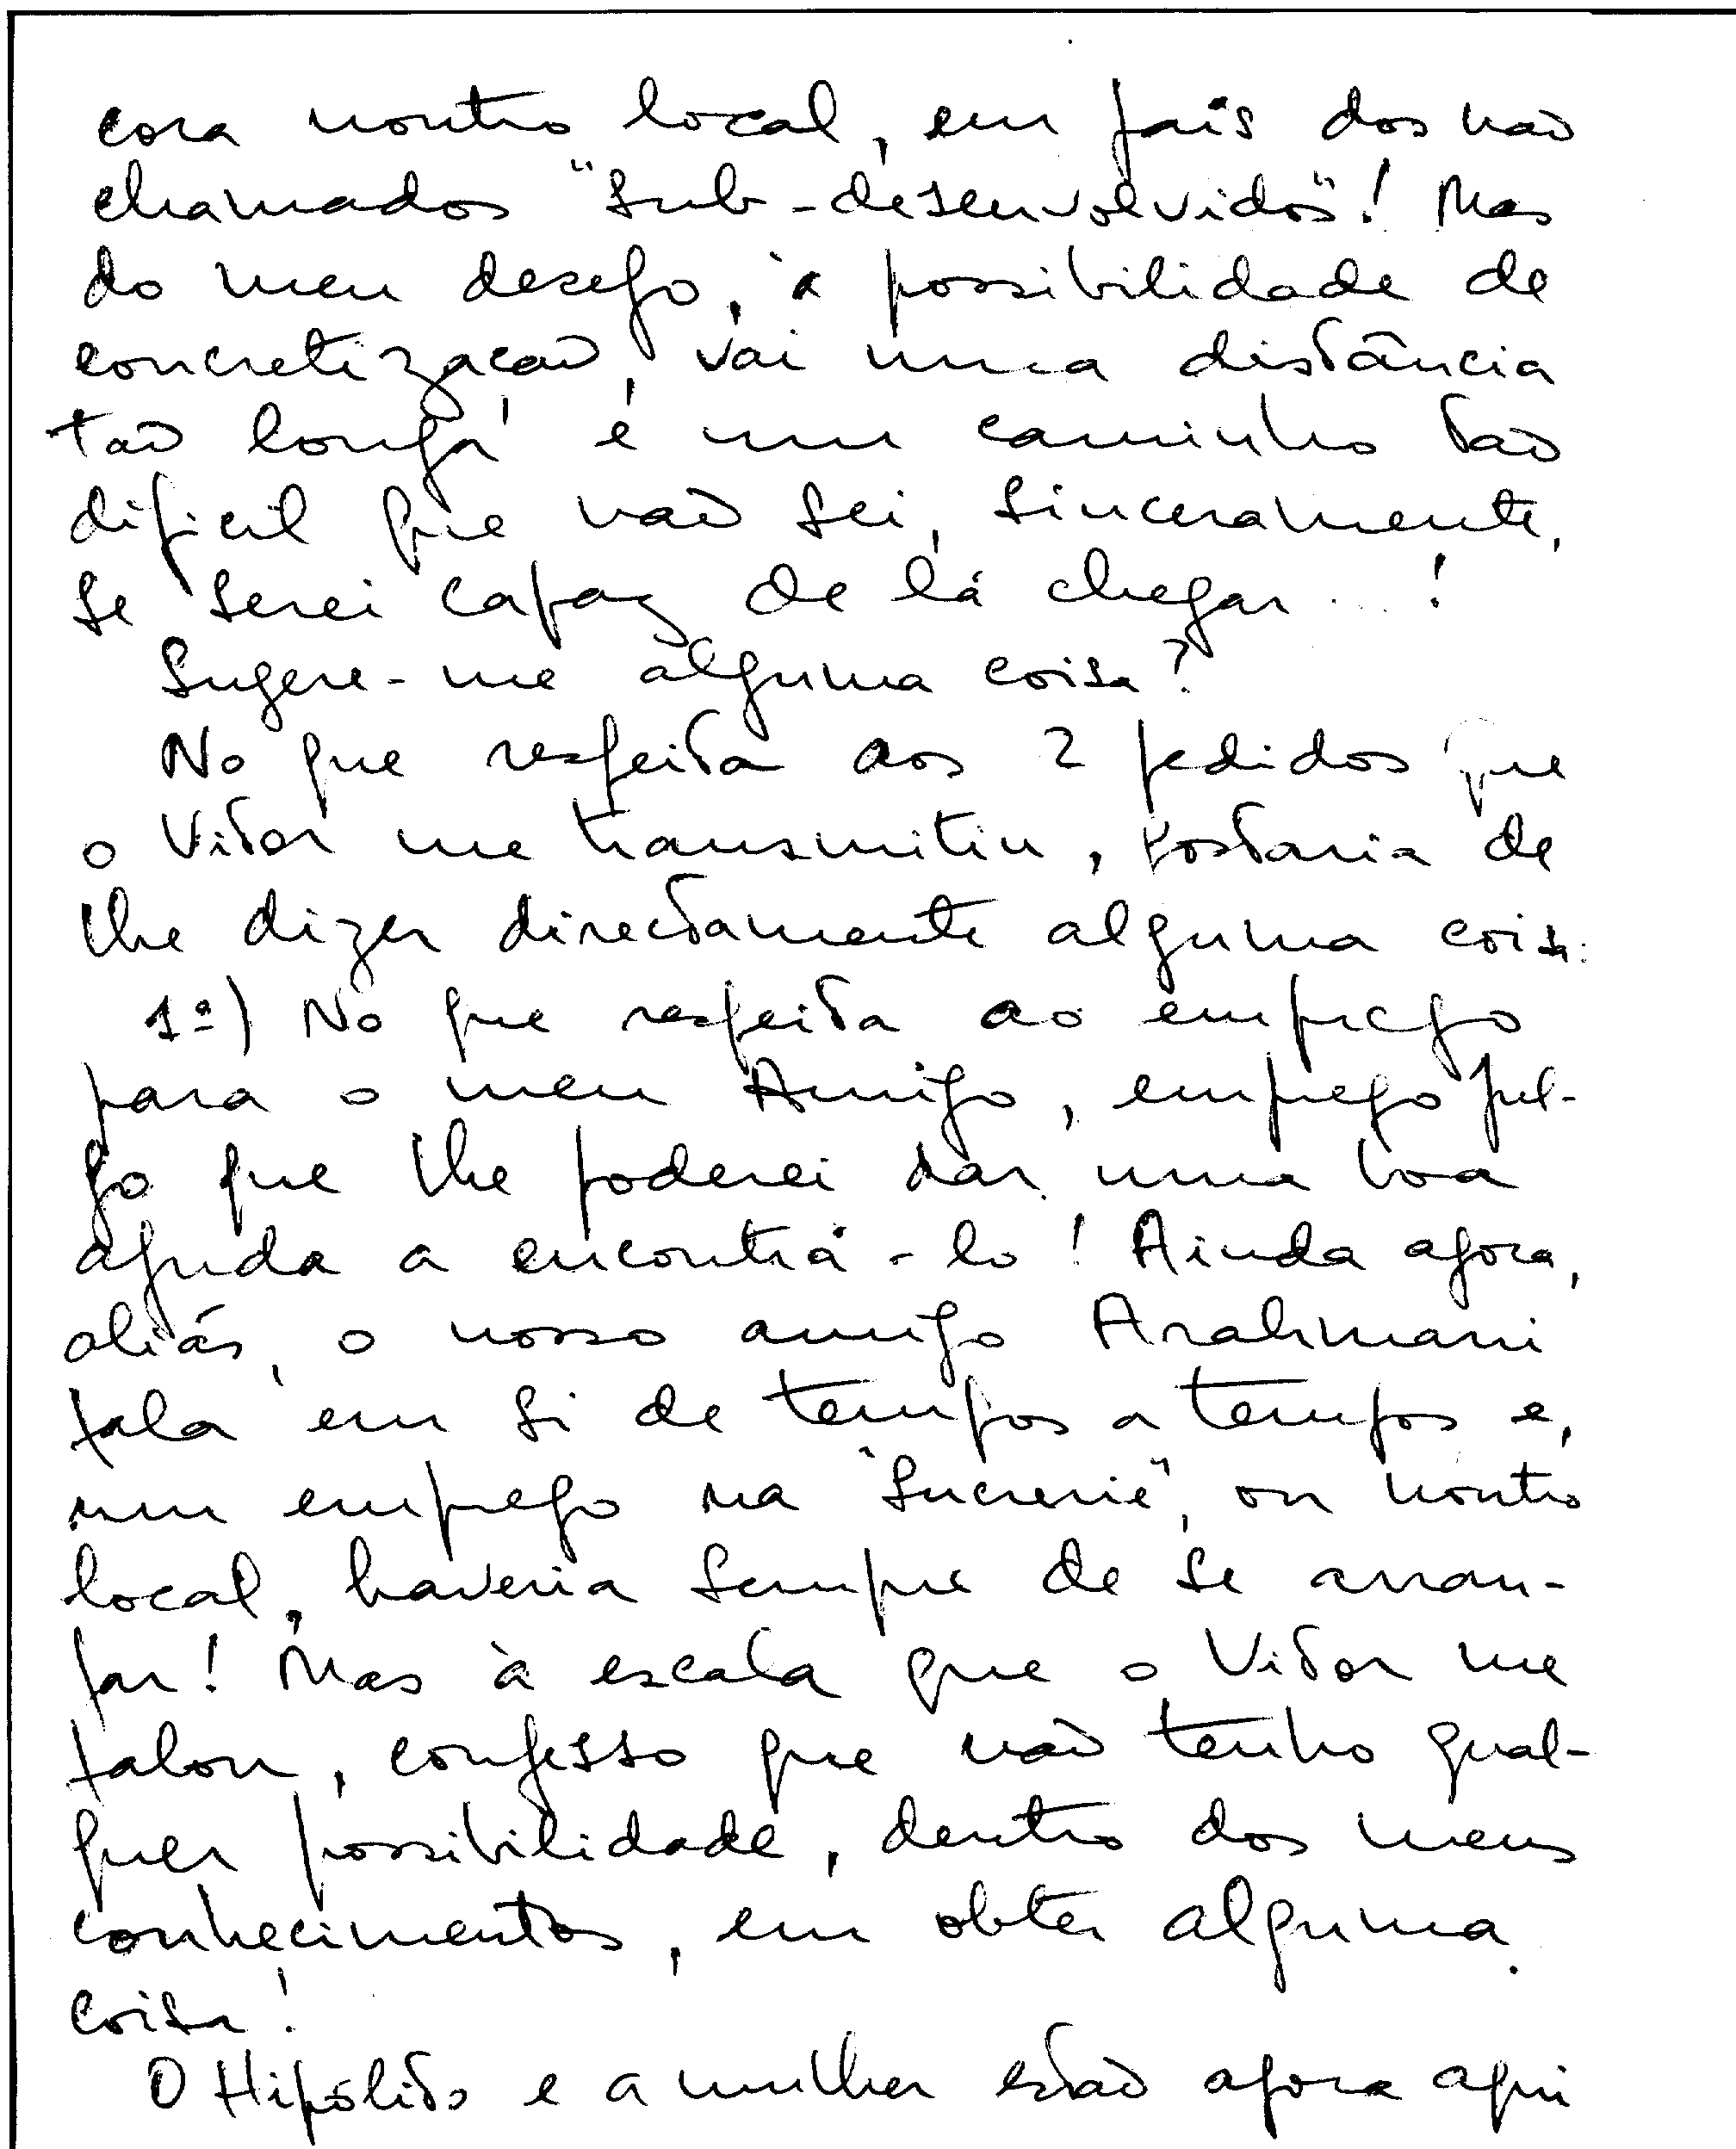 cora noutro local, em país dos não
chamados "sub-desenvolvidos"! Mas
do meu desejo, à possibilidade de
concretização, vai uma distância
tão longa e um caminho tão
difícil que não sei, sinceramente,
se serei capaz de lá chegar...!
Sugere-me alguma coisa?
No que respeita aos 2 pedidos que
o Vitor me transmitiu, gostaria de
lhe dizer directamente alguma coisa:
1º) No que respeita ao emprego
para o meu Amigo, emprego jul-
go que lhe poderei dar uma boa
ajuda a encontrá-lo! Ainda agora,
aliás, o nosso amigo
fala em si de tempos a tempos e,
um emprego na "Sucrerie", ou noutro
local, haveria sempre de se arran-
jar! Mas à escala que o Vitor me
falou, confesso que não tenho qual-
quer possibilidade, dentro dos meus
conhecimentos, em obter alguma
coisa!
O Hipólito e a mulher estão agora aqui